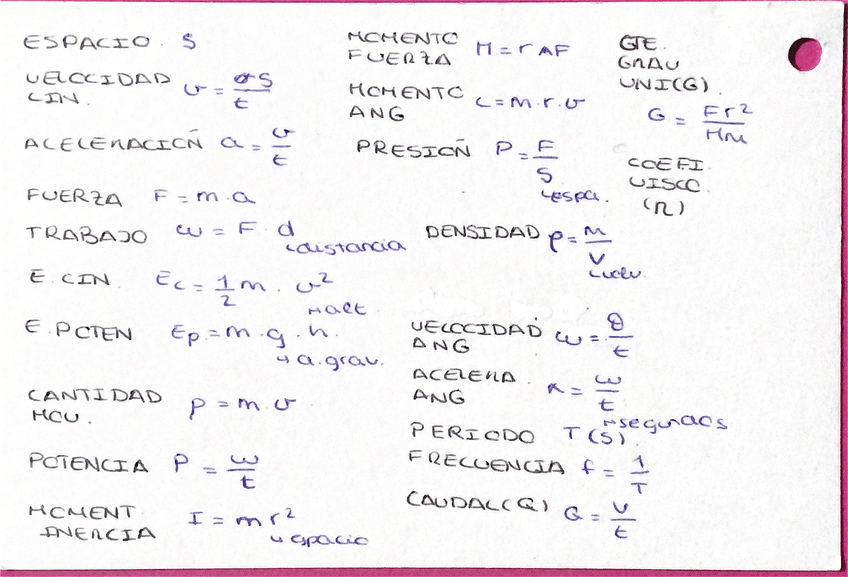 ESPACIO S
VELOCIDAD LIN. v = s/t
ACELERACIÓN a = v/t
FUERZA F = m.a
TRABAJO w = F. d
↳distancia
E. CIN. Ec = 1/2 m. v²
E. POTEN Ep = m.g.h. ↱alt.
↳ a.grav.
CANTIDAD MOV. p = m.v
POTENCIA P = w/t
MOMENT. INERCIA I = m r²
↳ espacio
MOMENTO FUERZA M = r ∧ F
MOMENTO ANG L = m.r.v
PRESIÓN P = F/S
↳espa.
DENSIDAD ρ = m/V
↳volu.
VELOCIDAD ANG ω = θ/t
ACELERA. ANG α = ω/t
PERIODO T (s). ↱segundos
FRECUENCIA f = 1/T
CAUDAL(Q) Q = V/t
CTE. GRAV UNI(G).
G = Fr²/Mm
COEFI. VISCO. (η)